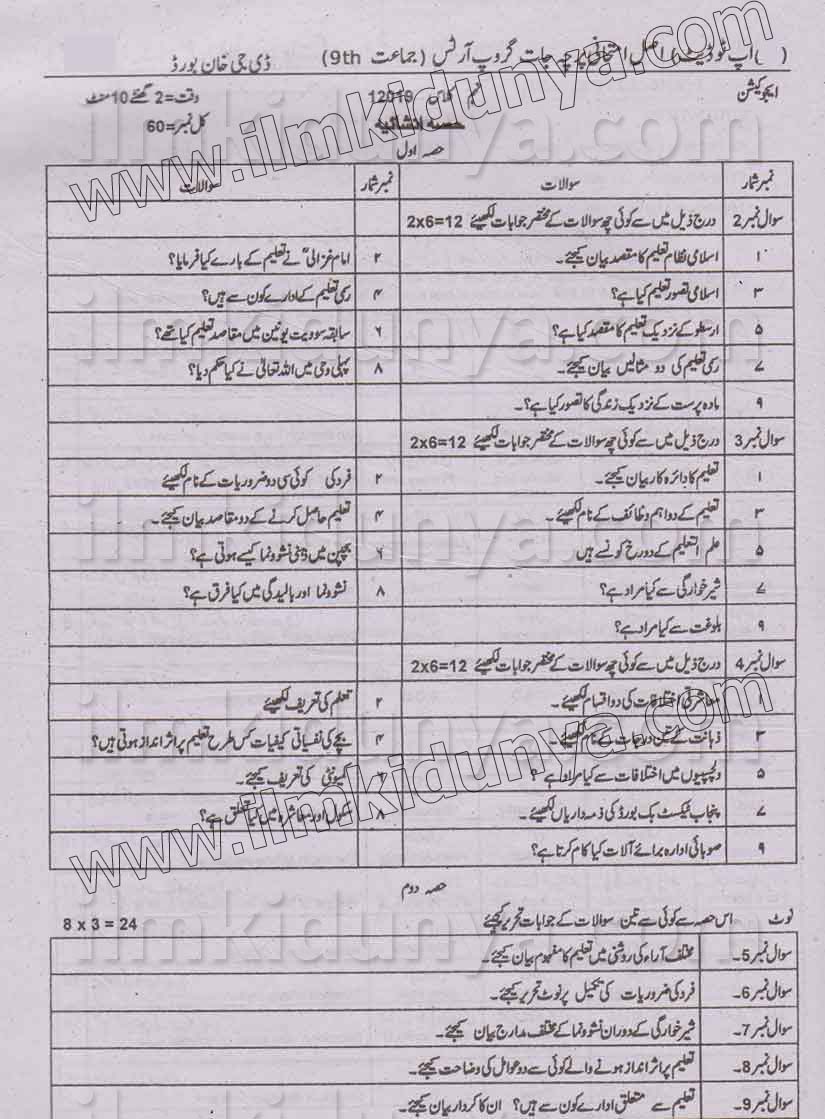 ( ) اپ ٹو ڈیٹ / اصل امتحانی پرچہ جات گروپ آرٹس ( جماعت 9th) ڈی جی خان بورڈ
ایجوکیشن نہم کلاس 12019 وقت=2 گھنٹے 10 منٹ
حصہ انشائیہ کل نمبر=60
حصہ اول
نمبر شمار سوالات نمبر شمار سوالات
سوال نمبر 2 درج ذیل میں سے کوئی چھ سوالات کے مختصر جوابات لکھیئے 2x6=12
۱ اسلامی نظام تعلیم کا مقصد بیان کیجئے۔ ۲ امام غزالیؒ نے تعلیم کے بارے کیا فرمایا؟
۳ اسلامی تصور تعلیم کیا ہے؟ ۴ رسمی تعلیم کے ادارے کون سے ہیں؟
۵ ارسطو کے نزدیک تعلیم کا مقصد کیا ہے؟ ۶ سابقہ سوویت یونین میں مقاصد تعلیم کیا تھے؟
۷ رسمی تعلیم کی دو مثالیں بیان کیجئے۔ ۸ پہلی وحی میں اللہ تعالیٰ نے کیا حکم دیا؟
۹ مادہ پرست کے نزدیک زندگی کا تصور کیا ہے؟۔
سوال نمبر 3 درج ذیل میں سے کوئی چھ سوالات کے مختصر جوابات لکھیئے 2x6=12
۱ تعلیم کا دائرہ کار بیان کیجئے۔ ۲ فرد کی کوئی سی دو ضروریات کے نام لکھیئے
۳ تعلیم کے دو اہم وظائف کے نام لکھیئے۔ ۴ تعلیم حاصل کرنے کے دو مقاصد بیان کیجئے۔
۵ علم التعلیم کے دو رخ کونسے ہیں ۶ بچپن میں ذہنی نشوونما کیسے ہوتی ہے؟
۷ شیر خوارگی سے کیا مراد ہے؟ ۸ نشوونما اور بالیدگی میں کیا فرق ہے؟
۹ بلوغت سے کیا مراد ہے؟
سوال نمبر 4 درج ذیل میں سے کوئی چھ سوالات کے مختصر جوابات لکھیئے 2x6=12
۱ معاشرتی اختلافات کی دو اقسام لکھیئے۔ ۲ تعلم کی تعریف لکھیئے
۳ ذہانت کے تین درجات کے نام لکھیئے۔ ۴ بچے کی نفسیاتی کیفیات کس طرح تعلیم پر اثر انداز ہوتی ہیں؟
۵ دلچسپیوں میں اختلافات سے کیا مراد ہے؟ ۶ کمیونٹی کی تعریف کیجئے۔
۷ پنجاب ٹیکسٹ بک بورڈ کی ذمہ داریاں لکھیئے۔ ۸ سکول اور معاشرہ میں کیا تعلق ہے؟
۹ صوبائی ادارہ برائے آلات کیا کام کرتا ہے؟
حصہ دوم
نوٹ اس حصہ سے کوئی سے تین سوالات کے جوابات تحریر کیجئے 8 x 3 = 24
سوال نمبر 5۔ مختلف آراء کی روشنی میں تعلیم کا مفہوم بیان کیجئے۔
سوال نمبر 6۔ فرد کی ضروریات کی تکمیل پر نوٹ تحریر کیجئے۔
سوال نمبر 7۔ شیر خوارگی کے دوران نشوونما کے مختلف مدارج بیان کیجئے۔
سوال نمبر 8۔ تعلیم پر اثر انداز ہونے والے کوئی سے دو عوامل کی وضاحت کیجئے۔
سوال نمبر 9۔ تعلیم سے متعلق ادارے کون سے ہیں؟ ان کا کردار بیان کیجئے۔
www.ilmkidunya.com
www.ilmkidunya.com
ilmkidunya.com
ilmkidunya.com
ilmkidunya.com
ilmkidunya.com
ilmkidunya.com
ilmkidunya.com